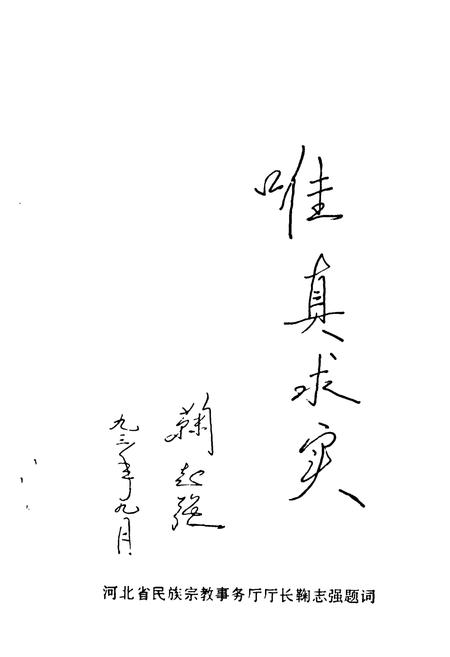 唯真求实
鞠志强
九三年九月
河北省民族宗教事务厅厅长鞠志强题词